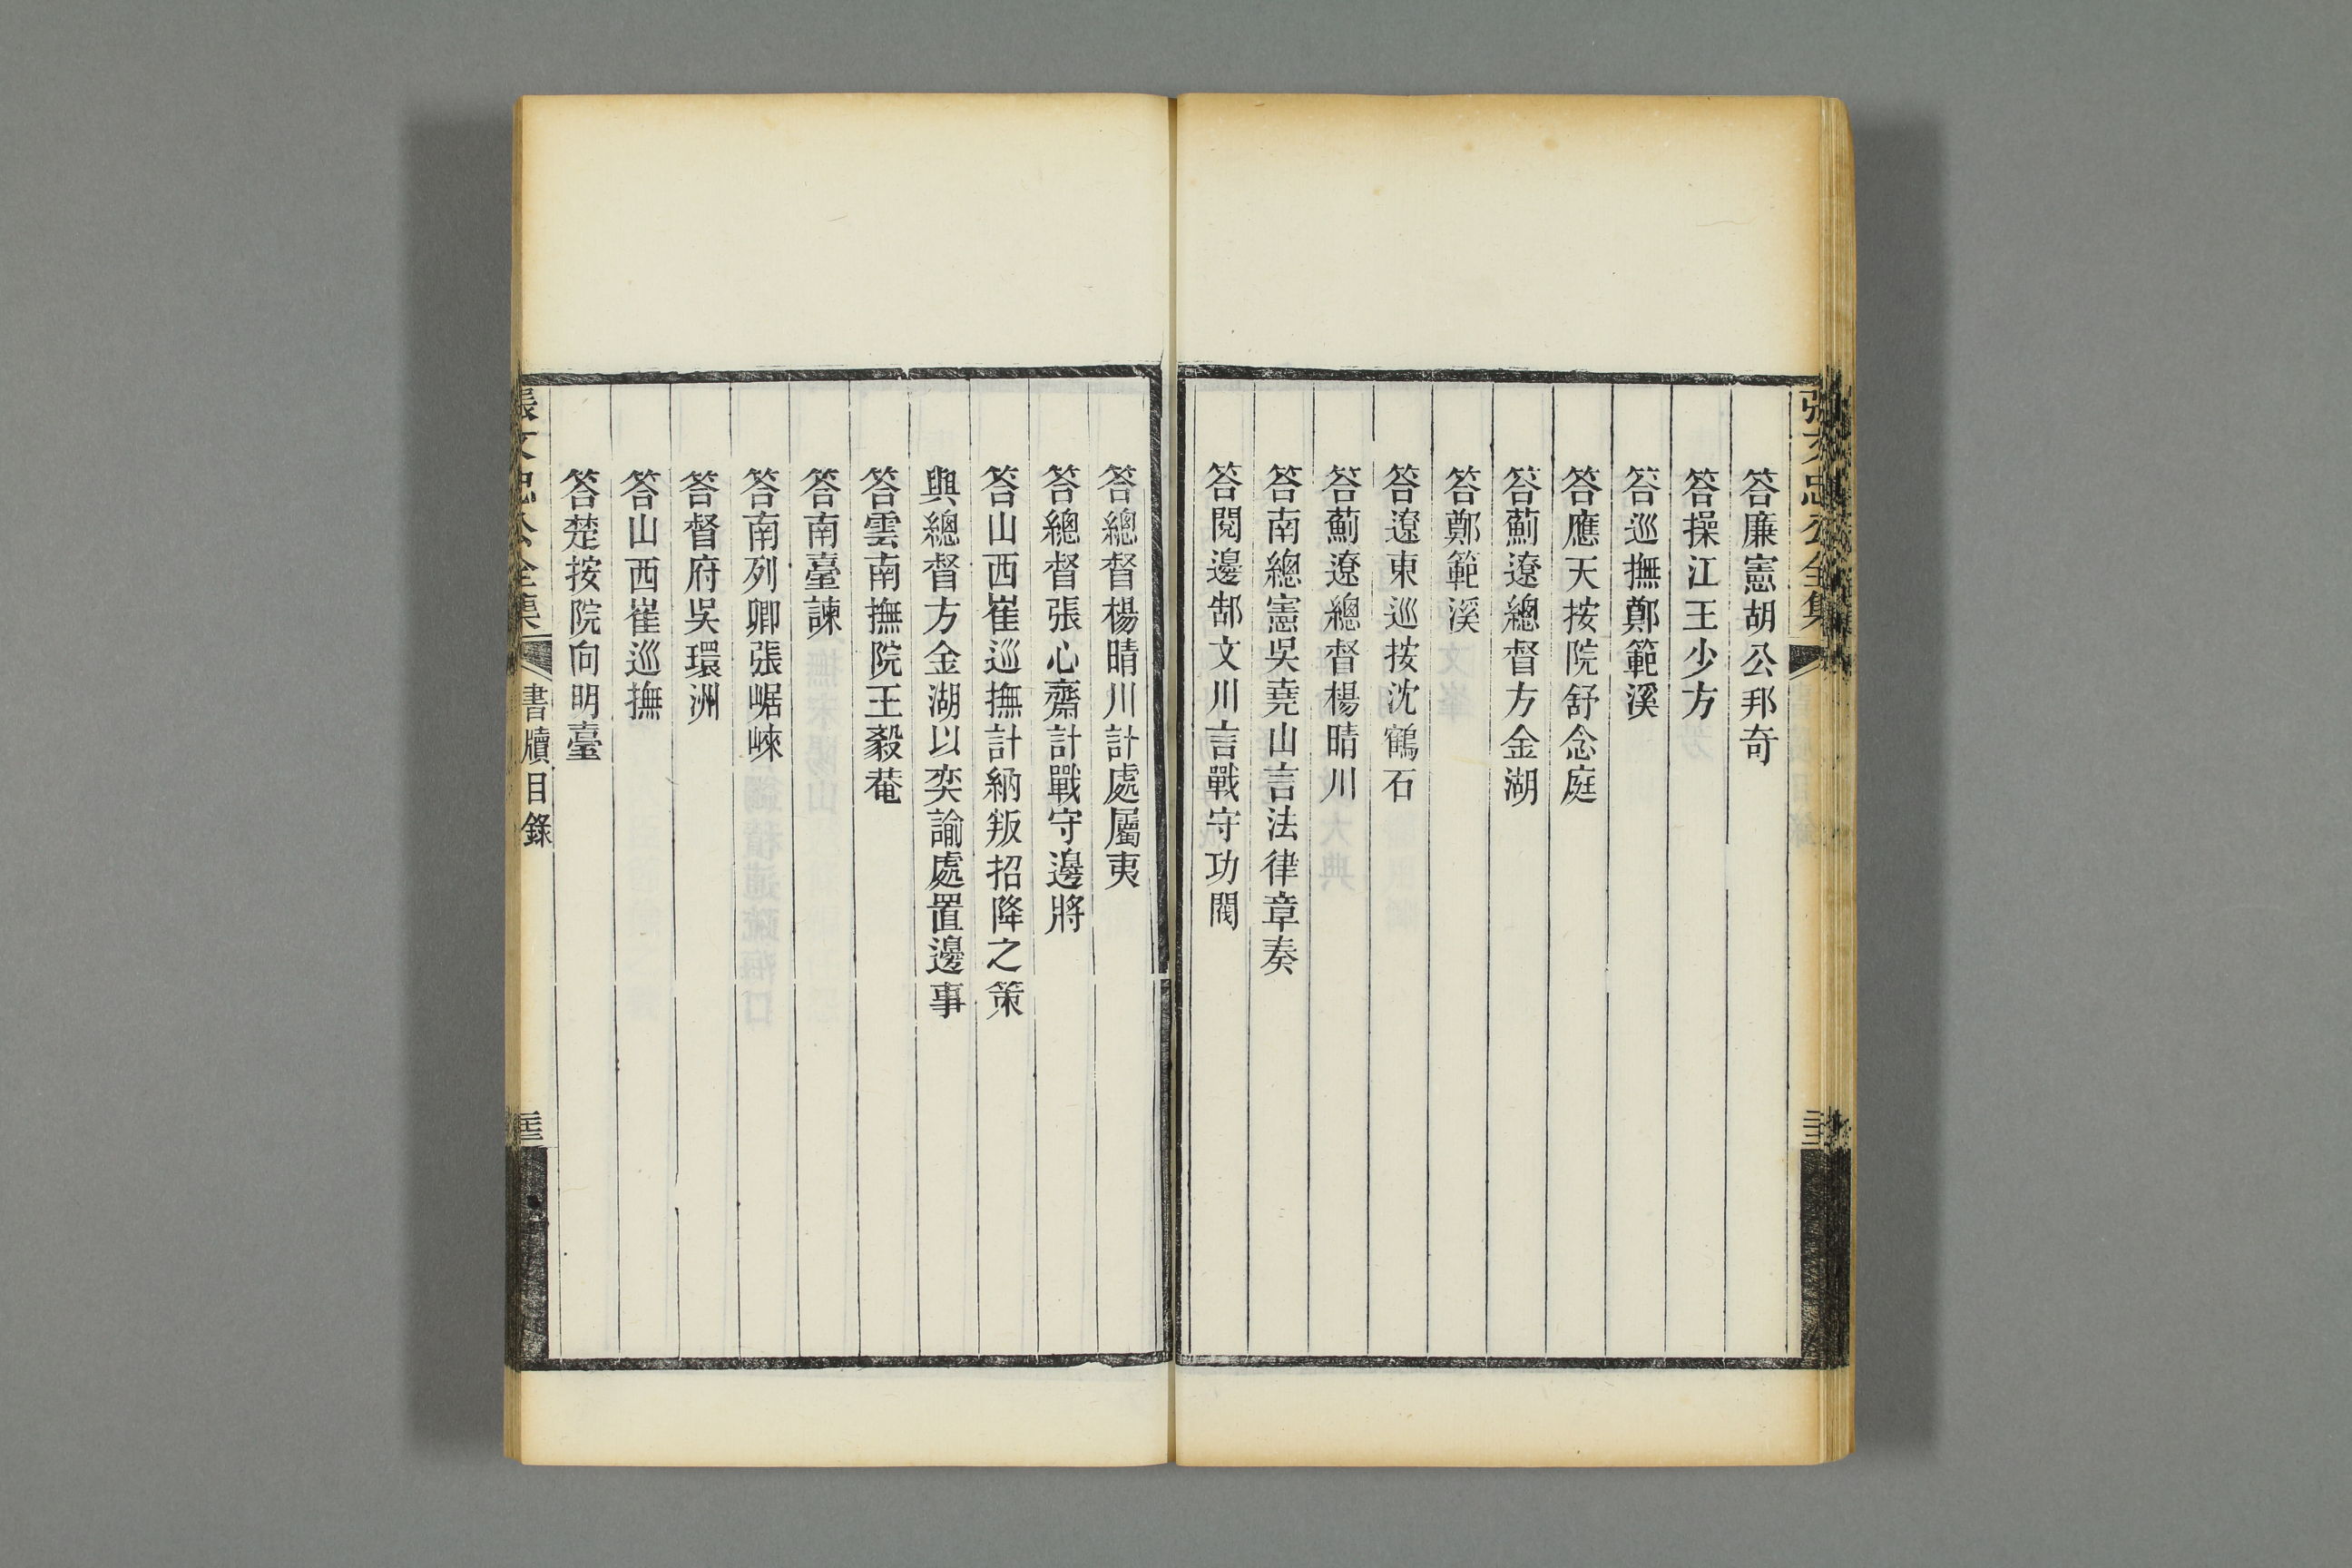 張文忠公全集
答廉憲胡公邦奇
答操江王少方
答巡撫鄭範溪
答應天按院舒念庭
答薊遼總督方金湖
答鄭範溪
答遼東巡按沈鶴石
答薊遼總督楊晴川
答南總憲吳堯山言法律章奏
答閱邊郜文川言戰守功閥
答總督楊晴川計處屬夷
答總督張心齋計戰守邊將
答山西崔巡撫計納叛招降之策
與總督方金湖以奕諭處置邊事
答雲南撫院王毅菴
答南臺諫
答南列卿張崌崍
答督府吳環洲
答山西崔巡撫
答楚按院向明臺
張文忠公全集
書牘目錄